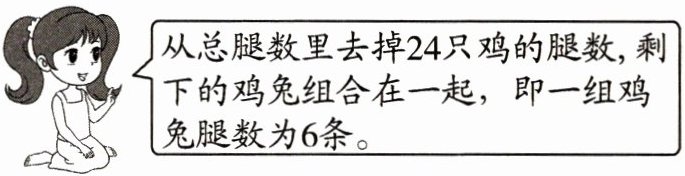 从总腿数里去掉24只鸡的腿数, 剩
下的鸡兔组合在一起，即一组鸡
兔腿数为6条。